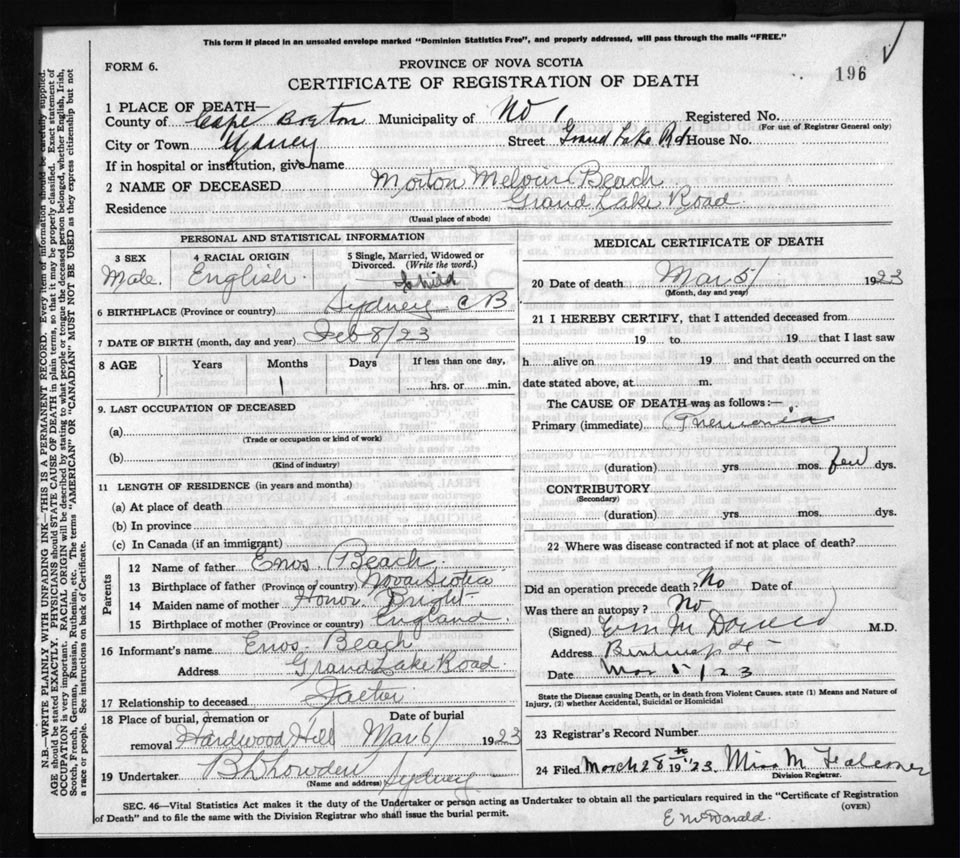 This form if placed in an unsealed envelope marked "Dominion Statistics Free", and properly addressed, will pass through the mails "FREE."
FORM 6.
PROVINCE OF NOVA SCOTIA
196
CERTIFICATE OF REGISTRATION OF DEATH
1 PLACE OF DEATH—
County of Cape Breton Municipality of No 1 Registered No.
(For use of Registrar General only)
City or Town Sydney Street Grand Lake Rd House No.
If in hospital or institution, give name
2 NAME OF DECEASED Morton Melvin Beach
Residence Grand Lake Road
(Usual place of abode)
PERSONAL AND STATISTICAL INFORMATION
3 SEX Male
4 RACIAL ORIGIN English
5 Single, Married, Widowed or Divorced. (Write the word.) Child
6 BIRTHPLACE (Province or country) Sydney C B
7 DATE OF BIRTH (month, day and year) Feb 8/23
8 AGE Years Months Days If less than one day,
1 hrs. or min.
9. LAST OCCUPATION OF DECEASED
(a)
(Trade or occupation or kind of work)
(b)
(Kind of industry)
11 LENGTH OF RESIDENCE (in years and months)
(a) At place of death
(b) In province
(c) In Canada (if an immigrant)
Parents
12 Name of father Enos Beach
13 Birthplace of father (Province or country) Nova Scotia
14 Maiden name of mother Honor Bright
15 Birthplace of mother (Province or country) England
16 Informant's name Enos Beach
Address Grand Lake Road
17 Relationship to deceased Father
18 Place of burial, cremation or removal Hardwood Hill Date of burial Mar 6/ 1923
19 Undertaker Sydney
(Name and address)
MEDICAL CERTIFICATE OF DEATH
20 Date of death Mar 5/ 1923
(Month, day and year)
21 I HEREBY CERTIFY, that I attended deceased from
19 to 19 that I last saw
h alive on 19 and that death occurred on the
date stated above, at m.
The CAUSE OF DEATH was as follows:—
Primary (immediate) Pnemonia
(duration) yrs mos. few dys.
CONTRIBUTORY
(Secondary)
(duration) yrs. mos. dys.
22 Where was disease contracted if not at place of death?
Did an operation precede death? No Date of
Was there an autopsy? No
(Signed) M.D.
Address
Date Mar 5/23
State the Disease causing Death, or in death from Violent Causes, state (1) Means and Nature of
Injury, (2) whether Accidental, Suicidal or Homicidal
23 Registrar's Record Number
24 Filed March 28th 1923 Miss M Falconer
Division Registrar.
SEC. 46—Vital Statistics Act makes it the duty of the Undertaker or person acting as Undertaker to obtain all the particulars required in the "Certificate of Registration
of Death" and to file the same with the Division Registrar who shall issue the burial permit.
(OVER)
E McDonald.
N.B.—WRITE PLAINLY WITH UNFADING INK—THIS IS A PERMANENT RECORD. Every item of information should be carefully supplied.
AGE should be stated EXACTLY. PHYSICIANS should STATE CAUSE OF DEATH in plain terms, so that it may be properly classified. Exact statement of
OCCUPATION is very important. RACIAL ORIGIN will be described by stating to what people or tongue the deceased person belonged, whether English, Irish,
Scotch, French, German, Russian, Ruthenian, etc. The terms "AMERICAN" OR "CANADIAN" MUST NOT BE USED as they express citizenship but not
a race or people. See instructions on back of Certificate.